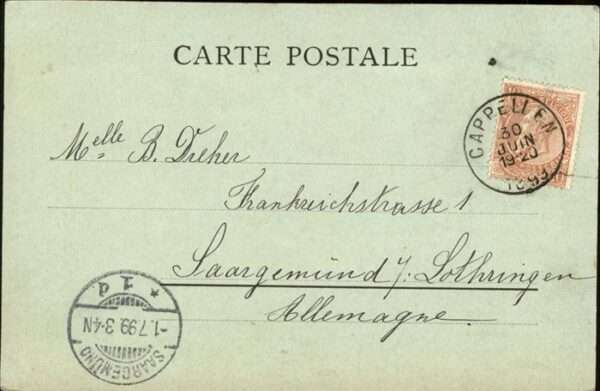 CARTE POSTALE
CAPPELLEN
30
JUIN
19-20
1899
Melle B. Dreher
Frankreichstrasse 1
Saargemünd i/. Lothringen
Allemagne.
* 1 d
-1.7.99.3-4N
SAARGEMÜND